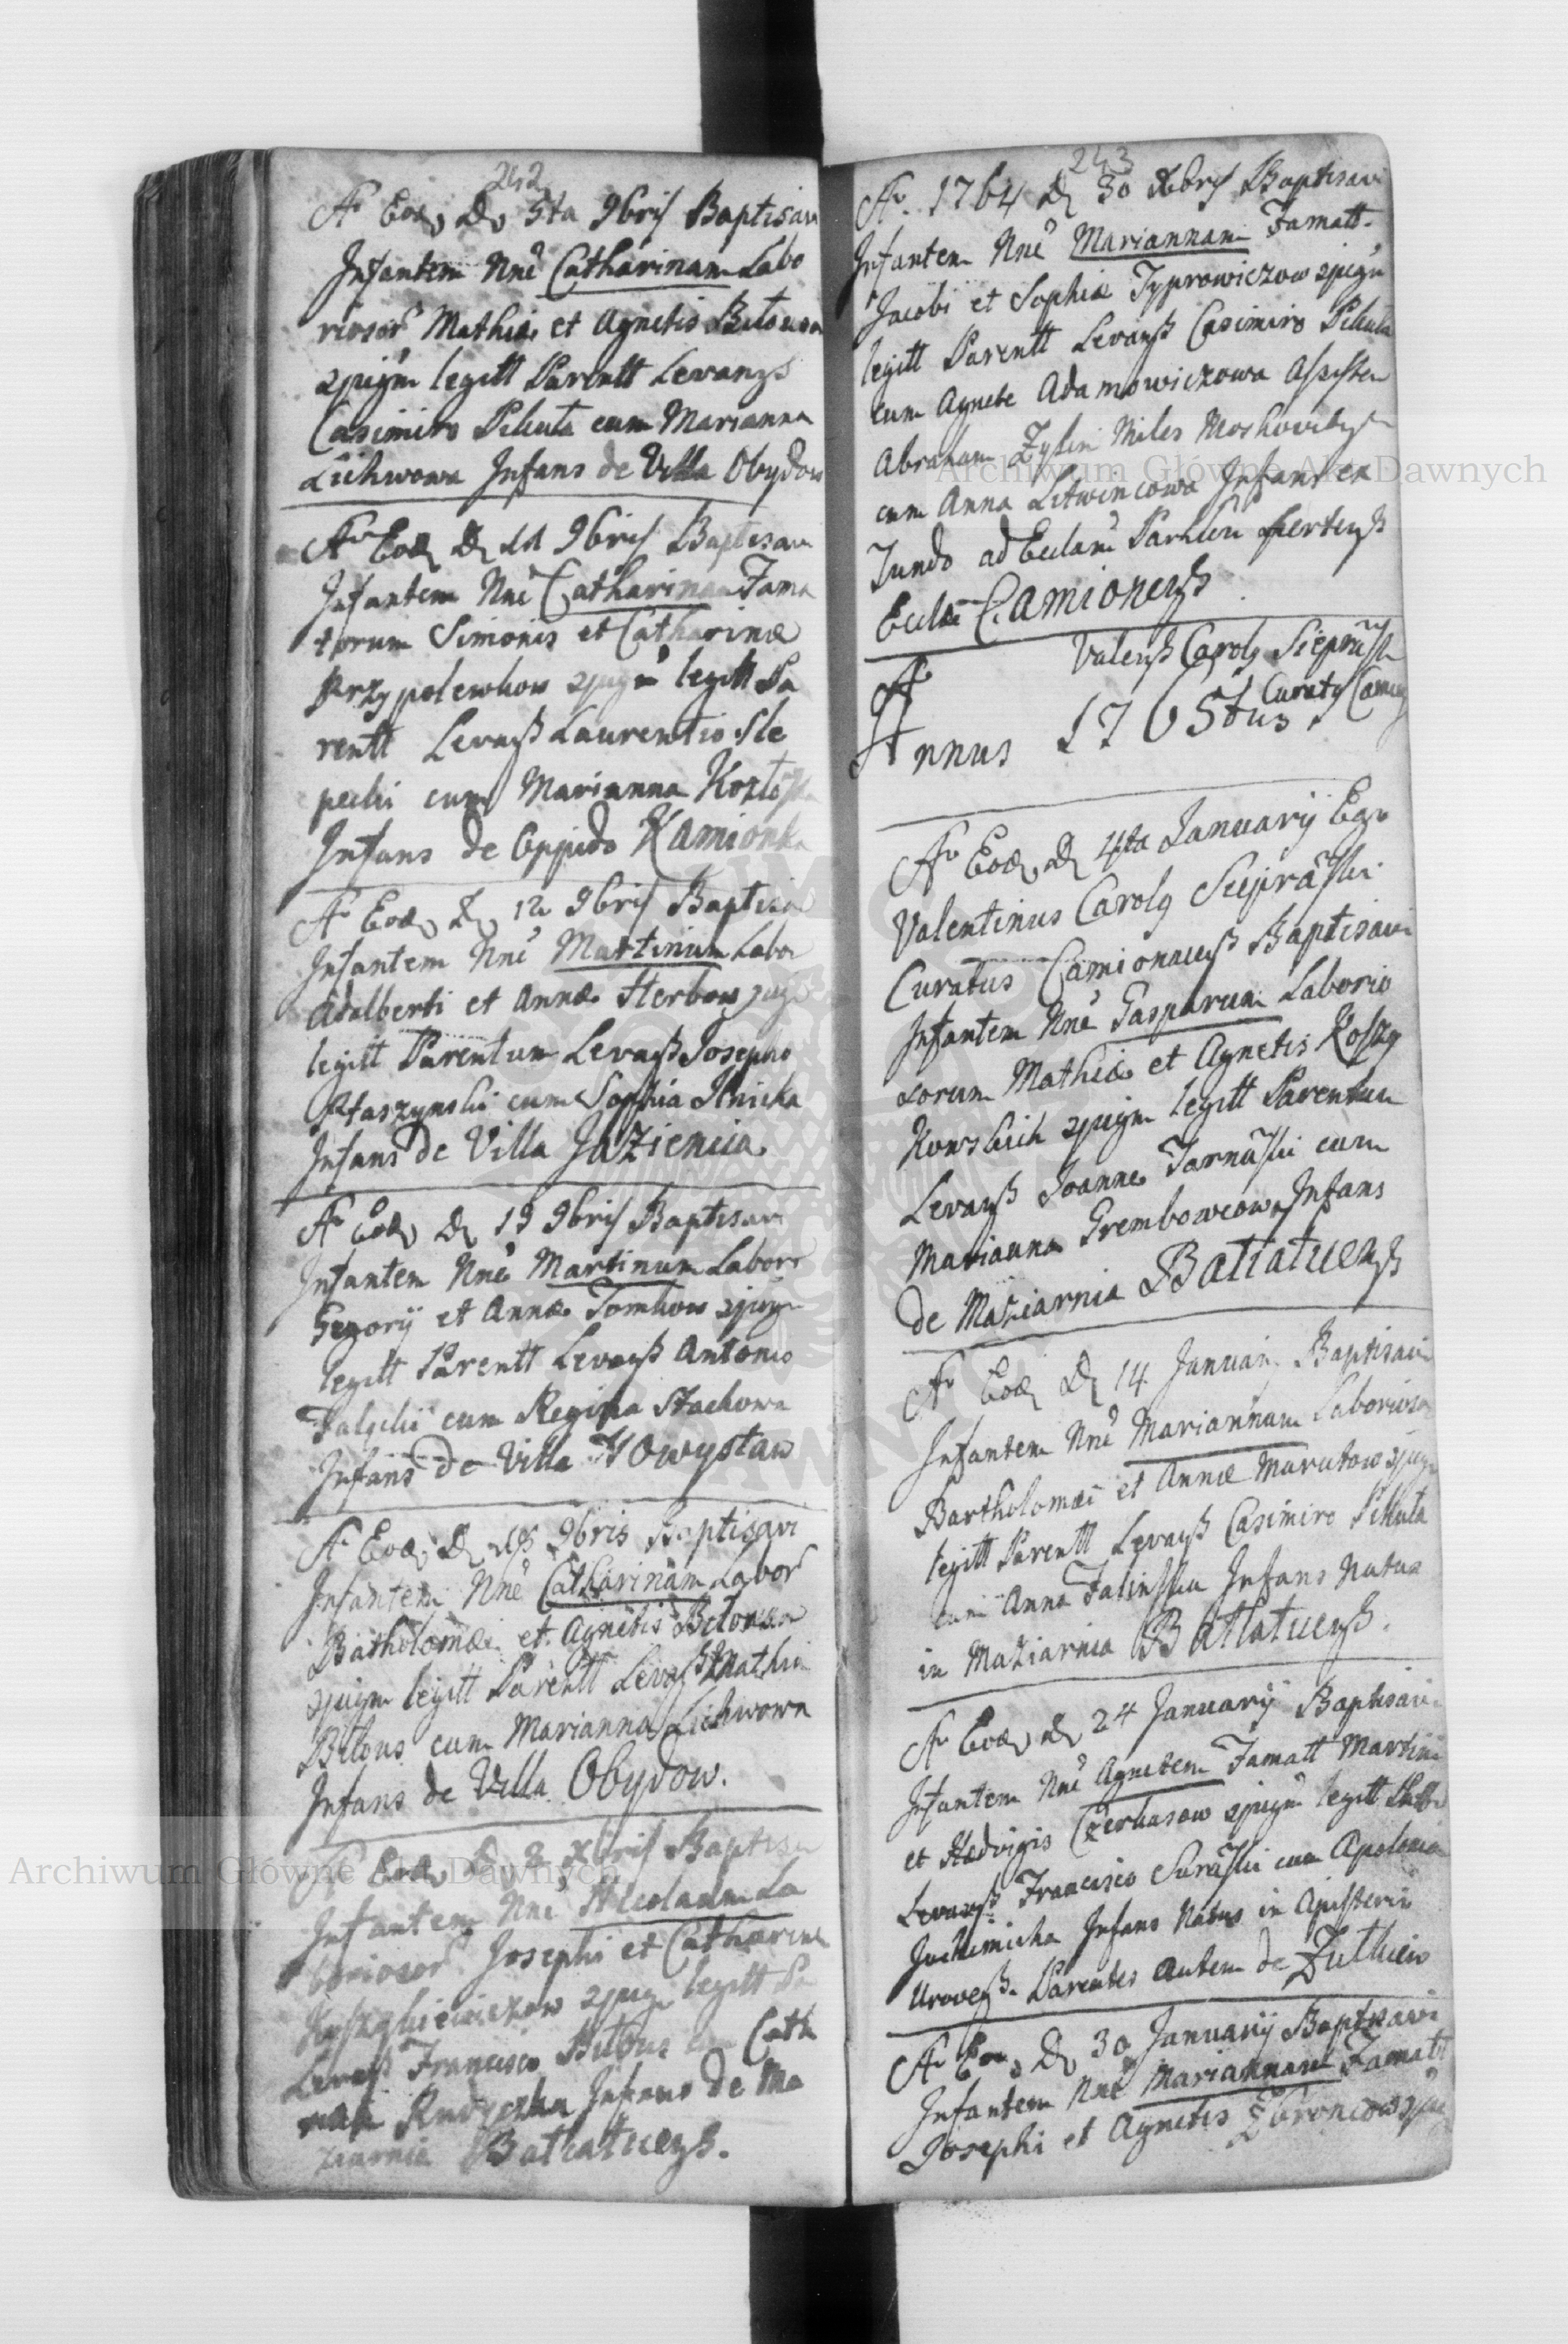 242
Ao Eod D 5ta 9bris Baptisavi
Infantem Nne Catharinam Labo
riosor Mathiæ et Agnetis
2jugm legitt Parentt Levanys
Casimiro Pikuta cum Marianna
Lichwowa Infans de Villa Obydow
Ao Eod D 11 9bris Baptisavi
Infantem Nne Catharinam Fama
torum Simonis et Catharinæ
Przypolewkow 2jugm legitt Pa
rentt Levanß Laurentio Sle
pecki cum Marianna
Infans de Oppido Kamionka
Ao Eod D 12 9bris Baptisa
Infantem Nne Martinum Labo
Adalberti et Annæ Herbow
legitt Parentum Levanß Josepho
Ptaszynski cum Sophia
Infans de Villa Jazienica
Ao Eod D 19 9bris Baptisavi
Infantem Nne Martinum Labor
Gegorij et Annæ Tomkow 2jugm
legitt Parentt Levanß Antonio
cum Regina Stachowa
Infans de Villa Nowystaw
Ao Eod D 9bris Baptisavi
Infantem Nne Catharinam Labor
Batholomæi et Agnetis
2jugm legitt Parentt Levanß Mathia
Bilous cum Marianna Lichwowa
Infans de Villa Obydow.
Ao Eod D 2 Xbris Baptisa
Infantem Nne Nicolaum La
boriosor Josephi et Catharinæ
2jugm legitt Pa
Levanß Francisco cum Cath
Rudyczka Infans de Ma
ziarnia Batiatycenß.
243
Ao. 1764 D 30 Xbris Baptisavi
Infantem Nne Mariannam Famatt.
Jacobi et Sophiæ Typrowiczow 2jugm
legitt Parentt Levanß Casimiro Pikuta
cum Agnete Adamowiczowa Assisten
Abraham Zylin Miles
cum Anna Litwincowa Infans ex
Fundo ad Ecclam
Ecclæ Camionenß
Valenß Carolg
Curatg
Ao
Annus 1765tus.
Ao Eod D 4ta Januarij Ego
Valentinus Carolg
Curatus Camionacenß Baptisavi
Infantem Nne Gasparum Laborio
sorum Mathiæ et Agnetis Koszy
kowskich 2jugm legitt Parentum
Levanß Joanne Tarnaski cum
Marianna Grembowcowa Infans
de Maziarnia Batiatycenß
Ao Eod D 14 Januarij Baptisavi
Infantem Nne Mariannam Laborioso
Bartholomæi et Annæ Marutow 2jugm
legitt Parentt Levanß Casimiro Pikuta
cum Anna Infans Natus
in Maziarnia Batiatycenß.
Ao Eod D 24 Januarij Baptisavi
Infantem Nne Agnetem Famatt Martini
et Hedvigis Czerkasow 2jugm legitt
Levanß Francisco cum Apolonia
Infans Natus in
Parentes autem de
Ao Eod D 30 Januarij Baptisavi
Infantem Nne Mariannam Famatt
Josephi et Agnetis 2jug
Archiwum Główne Akt Dawnych
Archiwum Główne Akt Dawnych